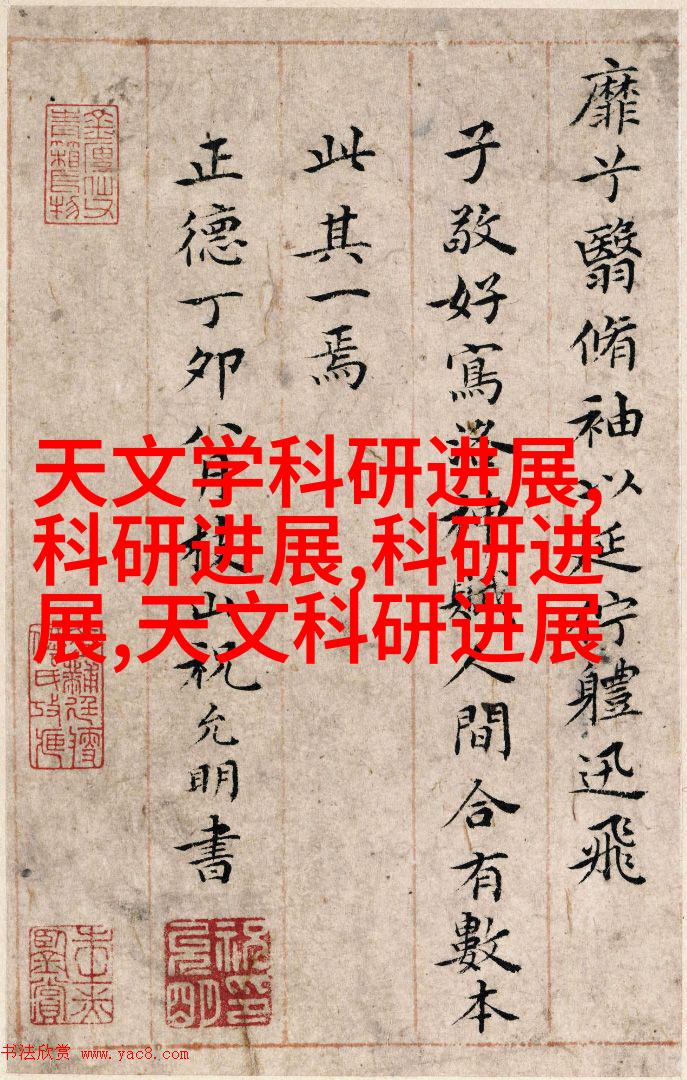 靡兮翳脩袖以延佇體迅飛
子敬好寫洛神賦人間合有數本
此其一焉
正德丁卯八月枝山祝允明書
天文学科研进展,
科研进展,科研进
展,天文科研进展
书法欣赏 www.yac8.com